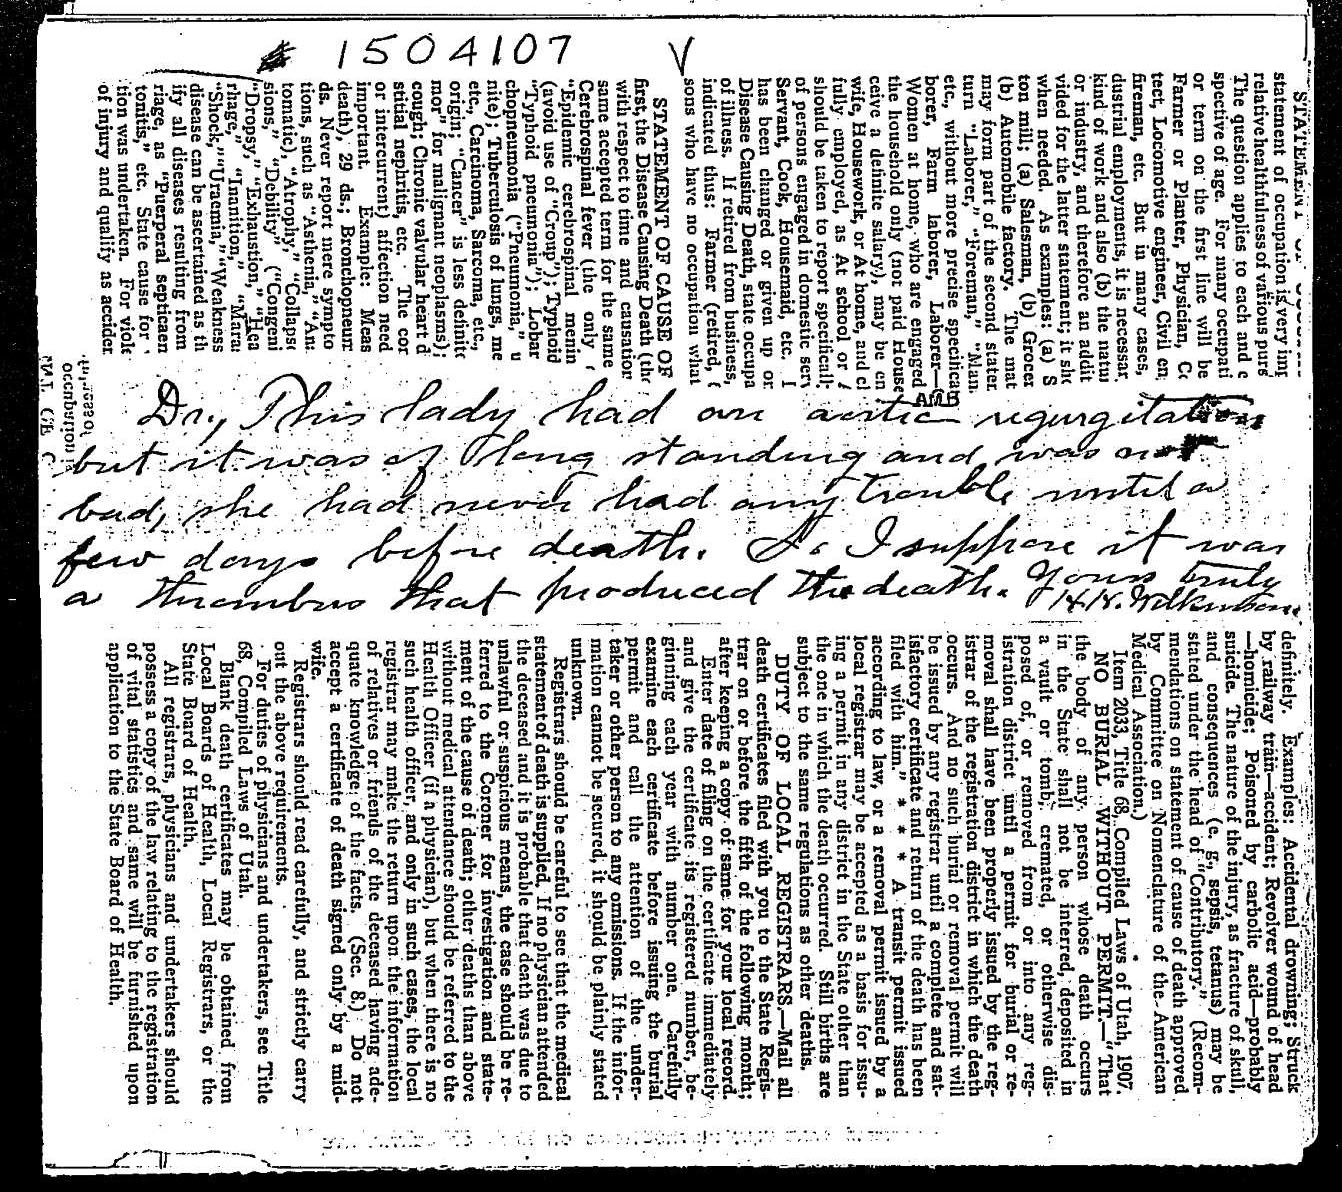 1504107
statement of occupation is very imp
relative healthfulness of various purs
The question applies to each and e
spective of age. For many occupati
or term on the first line will be
Farmer or Planter, Physician, Co
tect, Locomotive engineer, Civil en
fireman, etc. But in many cases,
dustrial employments, it is necessar
kind of work and also (b) the natu
or industry, and therefore an addit
vided for the latter statement; it sho
when needed. As examples: (a) S
ton mill; (a) Salesman, (b) Grocer
(b) Automobile factory. The mat
may form part of the second stater
turn "Laborer," "Foreman," "Man
etc., without more precise specificat
borer, Farm laborer, Laborer—
Women at home, who are engaged
the household only (not paid House
ceive a definite salary), may be en
wife, Housework, or At home, and cl
fully employed, as At school or A
should be taken to report specificall
of persons engaged in domestic ser
Servant, Cook, Housemaid, etc. I
has been changed or given up or
Disease Causing Death, state occupa
of illness. If retired from business,
indicated thus: Farmer (retired,
sons who have no occupation what
STATEMENT OF CAUSE OF
first, the Disease Causing Death (the
with respect to time and causation
same accepted term for the same
Cerebrospinal fever (the only
"Epidemic cerebrospinal menin
(avoid use of "Croup"); Typhoid
"Typhoid pneumonia"); Lobar
chopneumonia ("Pneumonia," u
nite); Tuberculosis of lungs, me
etc., Carcinoma, Sarcoma, etc.,
origin; "Cancer" is less definite
mor" for malignant neoplasms);
cough; Chronic valvular heart d
stitial nephritis, etc. The con
or intercurrent) affection need
important. Example: Meas
death), 29 ds.; Bronchopneum
ds. Never report mere sympto
tions, such as "Asthenia," "An
tomatic), "Atrophy," "Collaps
sions," "Debility" ("Congeni
"Dropsy," "Exhaustion," "Hea
rhage," "Inanition," "Mara
"Shock," "Uraemia," "Weakness
disease can be ascertained as th
ify all diseases resulting from
riage, as "Puerperal septicaem
tonitis," etc. State cause for
tion was undertaken. For viole
of injury and qualify as acciden
Dr., This lady had an aortic regurgitation
but it was of long standing and was not
bad, she had never had any trouble until a
few days before death. So I suppose it was
a thrombus that produced the death. Yours truly
H.N. Wilkinson.
definitely. Examples: Accidental drowning; Struck
by railway train—accident; Revolver wound of head
—homicide; Poisoned by carbolic acid—probably
suicide. The nature of the injury, as fracture of skull,
and consequences (e. g., sepsis, tetanus) may be
stated under the head of "Contributory." (Recom-
mendations on statement of cause of death approved
by Committee on Nomenclature of the American
Medical Association.)
Item 2033, Title 68, Compiled Laws of Utah, 1907.
NO BURIAL WITHOUT PERMIT.—"That
the body of any person whose death occurs
in the State shall not be interred, deposited in
a vault or tomb, cremated, or otherwise dis-
posed of, or removed from or into any reg-
istration district until a permit for burial or re-
moval shall have been properly issued by the reg-
istrar of the registration district in which the death
occurs. And no such burial or removal permit will
be issued by any registrar until a complete and sat-
isfactory certificate and return of the death has been
filed with him." * * * A transit permit issued
according to law, or a removal permit issued by a
local registrar may be accepted as a basis for issu-
ing a permit in any district in the State other than
the one in which the death occurred. Still births are
subject to the same regulations as other deaths.
DUTY OF LOCAL REGISTRARS.—Mail all
death certificates filed with you to the State Regis-
trar on or before the fifth of the following month;
after keeping a copy of same for your local record.
Enter date of filing on the certificate immediately
and give the certificate its registered number, be-
ginning each year with number one. Carefully
examine each certificate before issuing the burial
permit and call the attention of the under-
taker or other person to any omissions. If the infor-
mation cannot be secured, it should be plainly stated
unknown.
Registrars should be careful to see that the medical
statement of death is supplied. If no physician attended
the deceased and it is probable that death was due to
unlawful or suspicious means, the case should be re-
ferred to the Coroner for investigation and state-
ment of the cause of death; other deaths than above
without medical attendance should be referred to the
Health Officer (if a physician), but when there is no
such health officer, and only in such cases, the local
registrar may make the return upon the information
of relatives or friends of the deceased having ade-
quate knowledge of the facts. (Sec. 8.) Do not
accept a certificate of death signed only by a mid-
wife.
Registrars should read carefully, and strictly carry
out the above requirements.
For duties of physicians and undertakers, see Title
68, Compiled Laws of Utah.
Blank death certificates may be obtained from
Local Boards of Health, Local Registrars, or the
State Board of Health.
All registrars, physicians and undertakers should
possess a copy of the law relating to the registration
of vital statistics and same will be furnished upon
application to the State Board of Health.